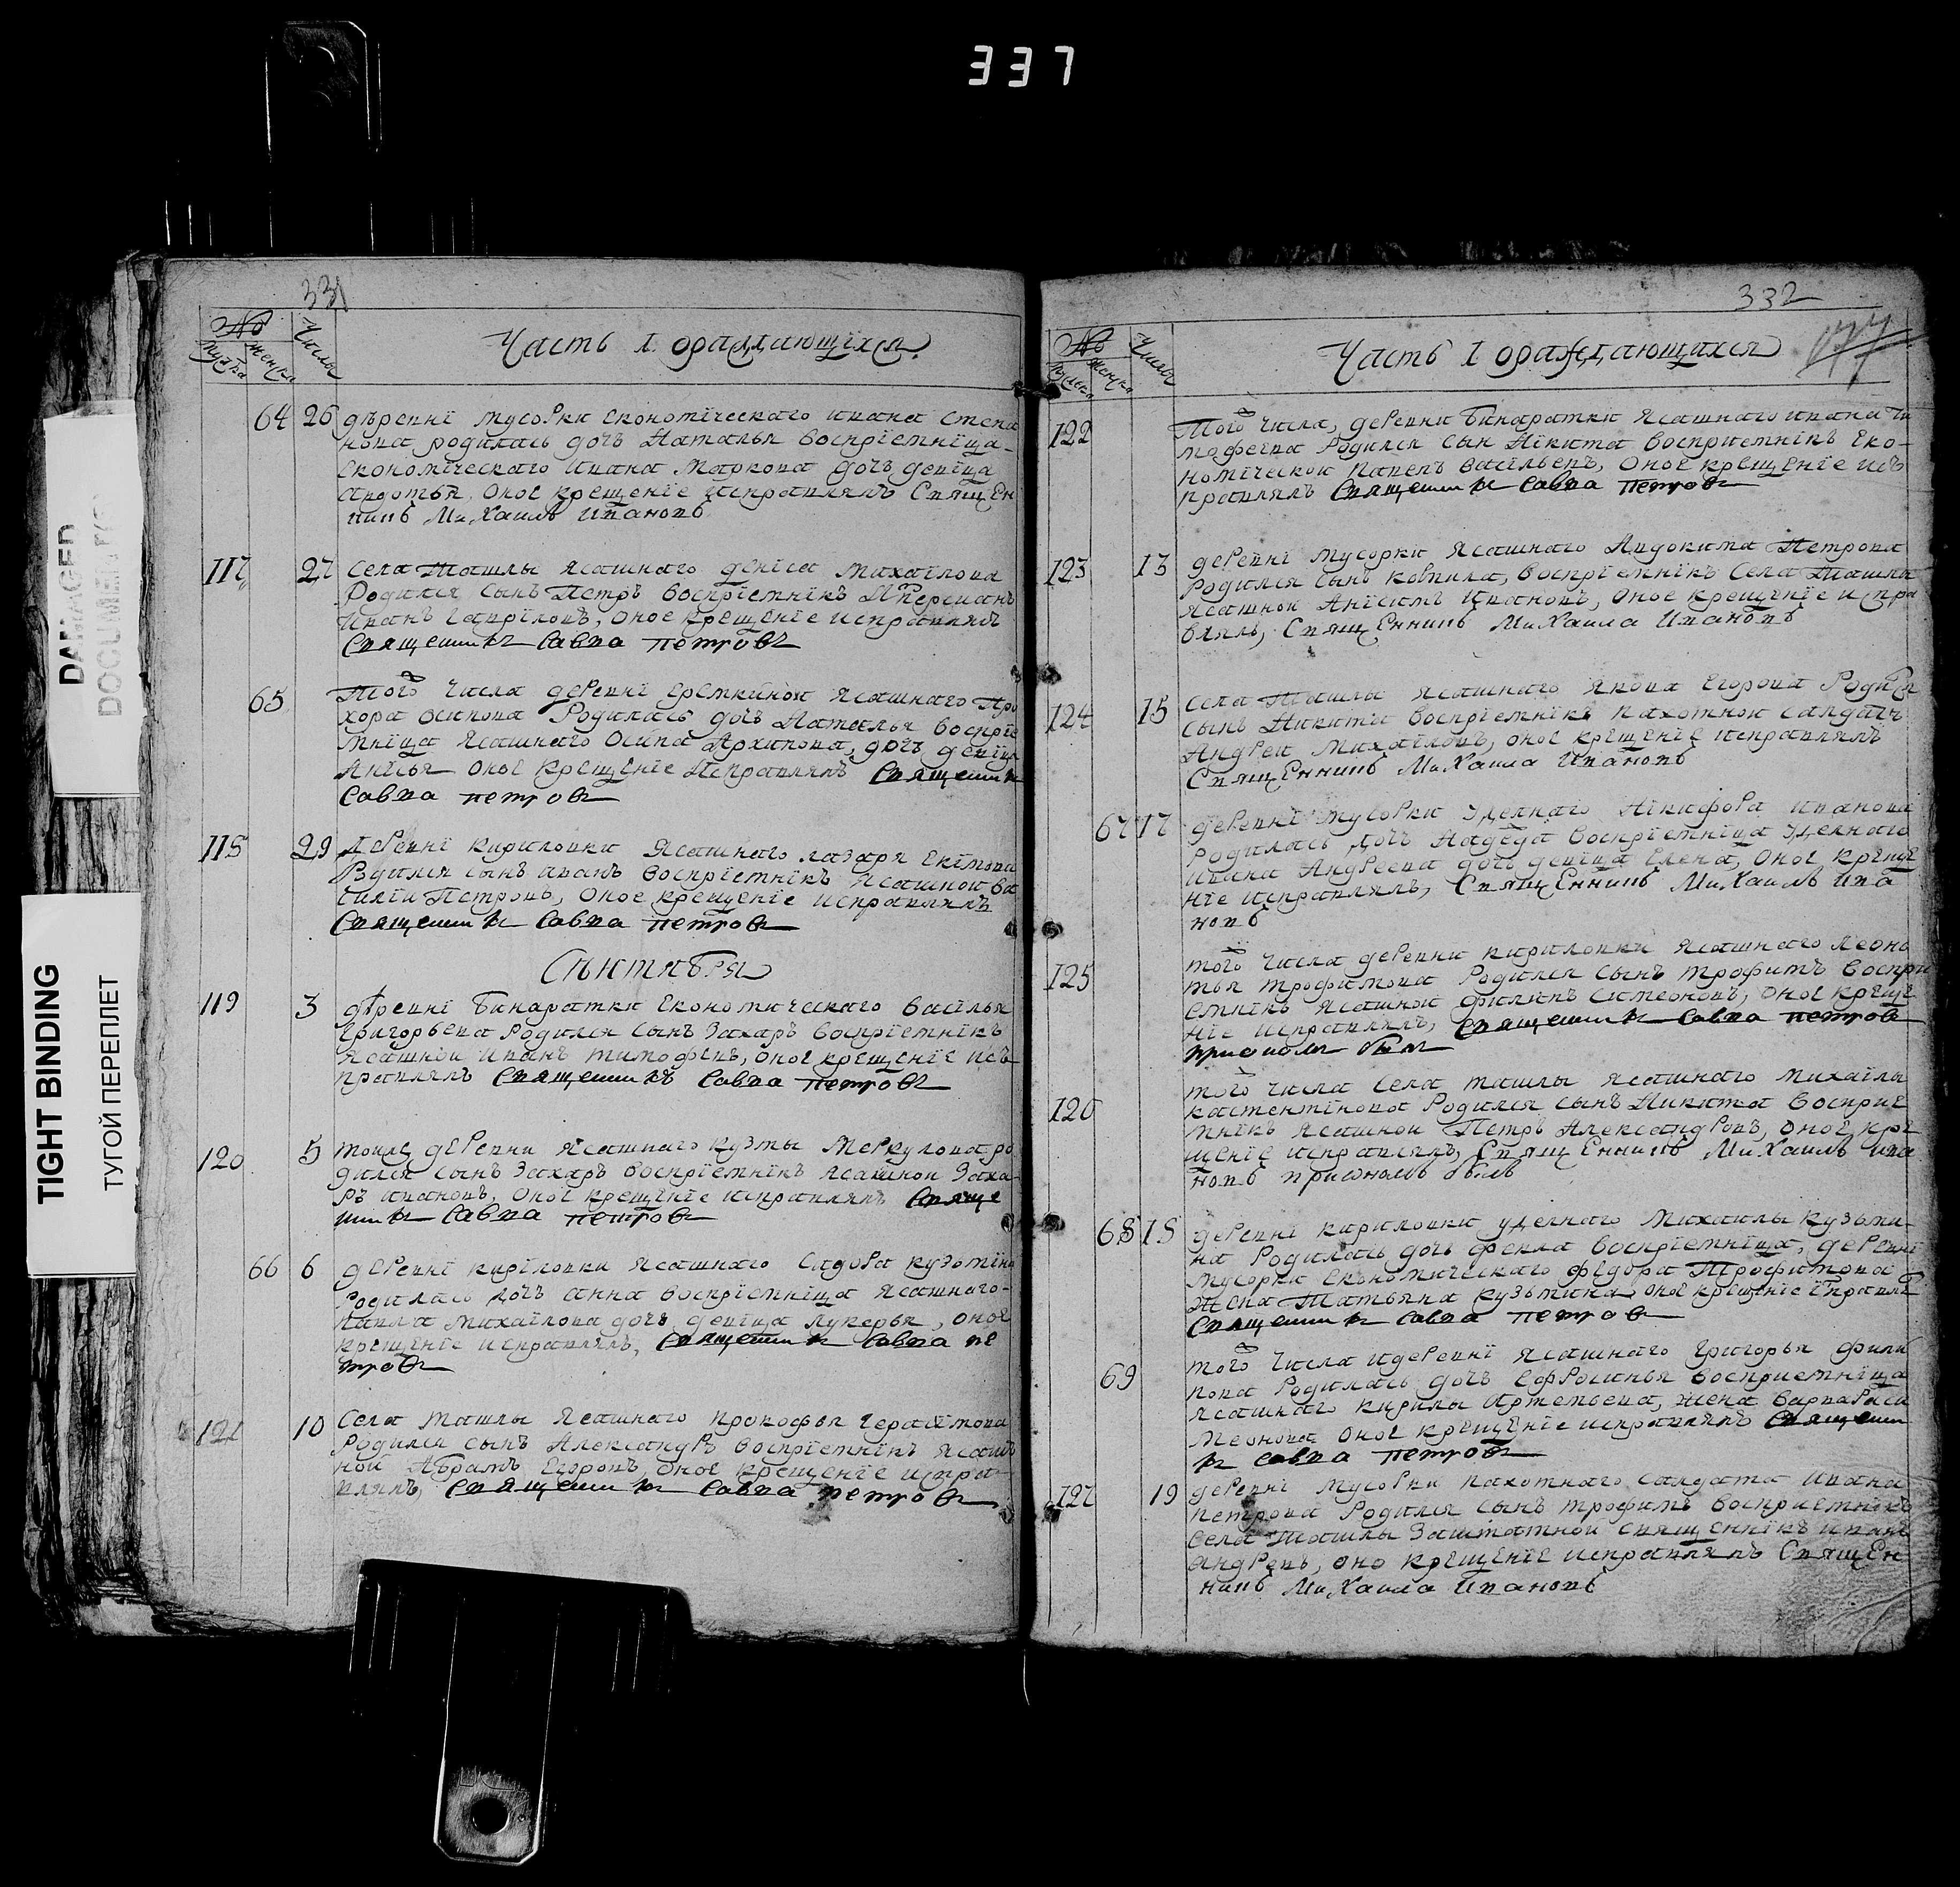 337
331
№
Мужска
женска
Числы
Часть 1. ораждающïхся
64 26 дѣревнï мусорки Економïческаго ивана степа
нова родилась дочъ Наталья воспрïемнïца
Економïческаго ивана Маркова дочъ девïца
авдотья, оное крещенïе исправлялъ Священ
никъ Михаилъ Ивановъ
117 27 Села Ташлы ясашнаго Денïса михаïлова
Родился сынъ Петръ воспрïемнïкъ
иванъ гаврïловъ, оное крещенïе исправлялъ
Священникъ Савва петровъ
65 Того числа деревнï еремкïной ясашнаго Про
хора осипова Родилась дочъ Наталья воспрïе
мнïца ясашнаго Осïпа Архипова, дочъ девïца
Анïсья оное крещенïе исправлялъ Священникъ
Савва петровъ
118 29 деревнï кириловки ясашнаго лазаря Екïмова
Родился сынъ иванъ воспрïемнïкъ ясашной ва
силïи Петровъ, оное крещенïе исправлялъ
Священникъ Савва петровъ
Сѣнтября
119 3 дѣревнï Бинаратки Економическаго васïлья
Григорьева Родился сынъ Захаръ воспрïемнïкъ
ясашной иванъ тимофевъ, оное крещенïе исъ
правлялъ Священникъ Савва петровъ
120 5 тоиже деревни ясашнаго кузмы Меркулова ро
дился сынъ Захаръ воспрïемнïкъ ясашной Заха
ръ ивановъ, оное крещенïе исправлялъ Свяще
нникъ Савва петровъ
66 6 деревнï кирïловки ясашнаго Сидора кузьмïна
Родилась дочъ анна воспрïемнïца ясашнаго
павла михаïлова дочъ девïца лукерья, оное
крещенïе исправлялъ, Священникъ Савва пе
тровъ
121 10 Села ташлы ясашнаго прокофья гераsïмова
Родился сынъ Александръ воспрïемнïкъ ясаш
ной Абрамъ Егоровъ оное крещенïе испра
влялъ, Священникъ Савва петровъ
332
177
№
Мужска
женска
Числы
Часть 1 ораждающихся
122 Того числа, деревни Бинаратки ясашнаго ивана ти
мофеева Родился сын Нïкита воспрïемнïкъ Еко-
номïческой павелъ васïльевъ, оное крещенïе исъ
правлялъ Священникъ Савва петровъ
123 13 деревнï мусорки ясашнаго Авдокима Петрова
Родился сынъ воспрïемнïкъ Села Ташлы
ясашной Анïсимъ ивановъ, оное крещенïе испра
влялъ, Священникъ Михаила Ивановъ
124 15 Села Ташлы ясашнаго якова Егорова Родился
сынъ Никита воспрïемнïкъ пахотной салдатъ
Андреи Михаïловъ, оное крещенïе исправлялъ
Священникъ Михаила Ивановъ
67 17 деревнï мусорки уделнаго Нïкифора иванова
Родилась дочъ Надежда воспрïемнïца уделнаго
ивана Андреева дочъ девïца елена, оное креще
нïе исправлялъ, Священникъ Михаилъ Ива
новъ
125 того числа деревни кириловки ясашнаго леонъ
тья трофимова Родился сынъ трофимъ воспри
емнïкъ ясашной филипъ симеоновъ, оное креще
нïе исправлялъ, Священникъ Савва петровъ
приономъ былъ
126 того числа Села ташлы ясашнаго михаïлы
кастентïнова Родился сынъ Никита восприе
мнïкъ ясашной Петръ Александровъ, оное кре
щенïе исправлялъ, Священникъ Михаилъ Ива
новъ приономъ былъ
68 18 деревнï кириловки уделнаго Михаилы кузьми
на Родилась дочъ фекла воспрïемнïца, деревнï
мусорки економическаго федора Трофимова
Жена Татьяна кузьмина оное крещенïе справлялъ
Священникъ Савва петровъ
69 того числа идеревнï ясашнаго Григорья фили
пова Родилась дочъ Ефросинья восприемнïца
ясашнаго кирилы Артемьева, жена варвара
оное крещенïе исправлялъ Священни
къ Савва петровъ
127 19 деревнï мусорки пахотнаго салдата ивана
петрова Родился сынъ трофимъ восприемнïкъ
Села Ташлы Заштатной священнïкъ иванъ
андревъ, оно крещенïе исправлялъ Священ
никъ Михаила Ивановъ
DAMAGED
DOCUMENTS
TIGHT BINDING
ТУГОЙ ПЕРЕПЛЕТ